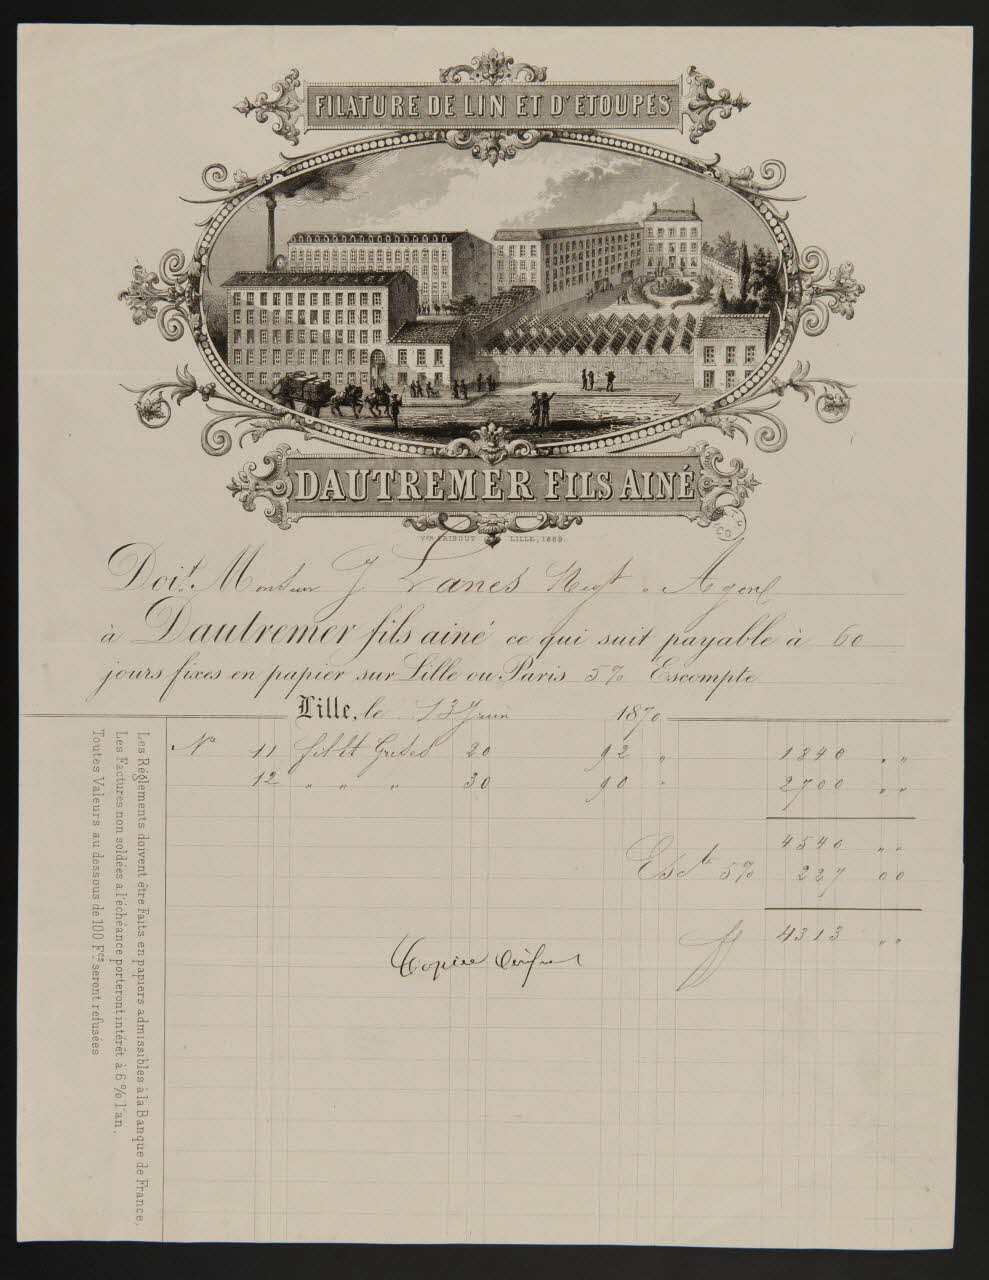 FILATURE DE LIN ET D'ETOUPES
DAUTREMER FILS AINÉ
LILLE, 1869
Doit Monsieur J Lanes Negt à Agen
à Dautremer fils ainé ce qui suit payable à 60
jours fixes en papier sur Lille ou Paris 5% Escompte
Lille, le 13 Juin 1870
No 11 20 92 " 1840 " "
12 " " " 30 90 " 2700 " "
4540 " "
Escte 5% 227 00
ff 4313 " "
Copie
Les Réglements doivent être Faits en papiers admissibles à la Banque de France.
Les Factures non soldées à l'échéance porteront intérêt à 6 % l'an.
Toutes Valeurs au dessous de 100 Fcs seront refusées